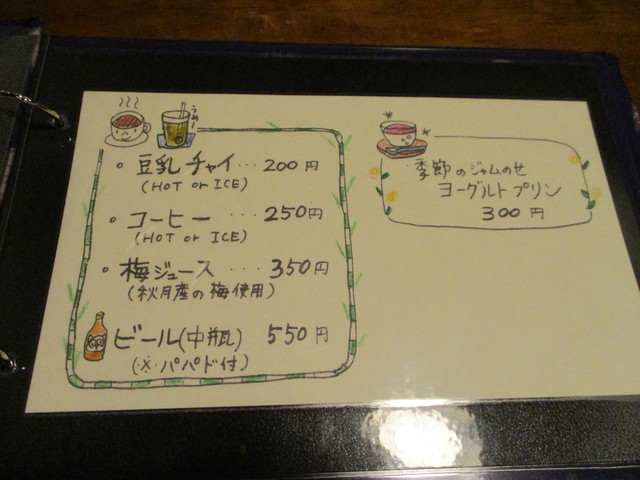 うめ〜
・豆乳チャイ…200円
(HOT or ICE)
・コーヒー…250円
(HOT or ICE)
・梅ジュース…350円
(秋月産の梅使用)
ビール(中瓶) 550円
(※パパド付)
季節のジャムのせ
ヨーグルトプリン
300円